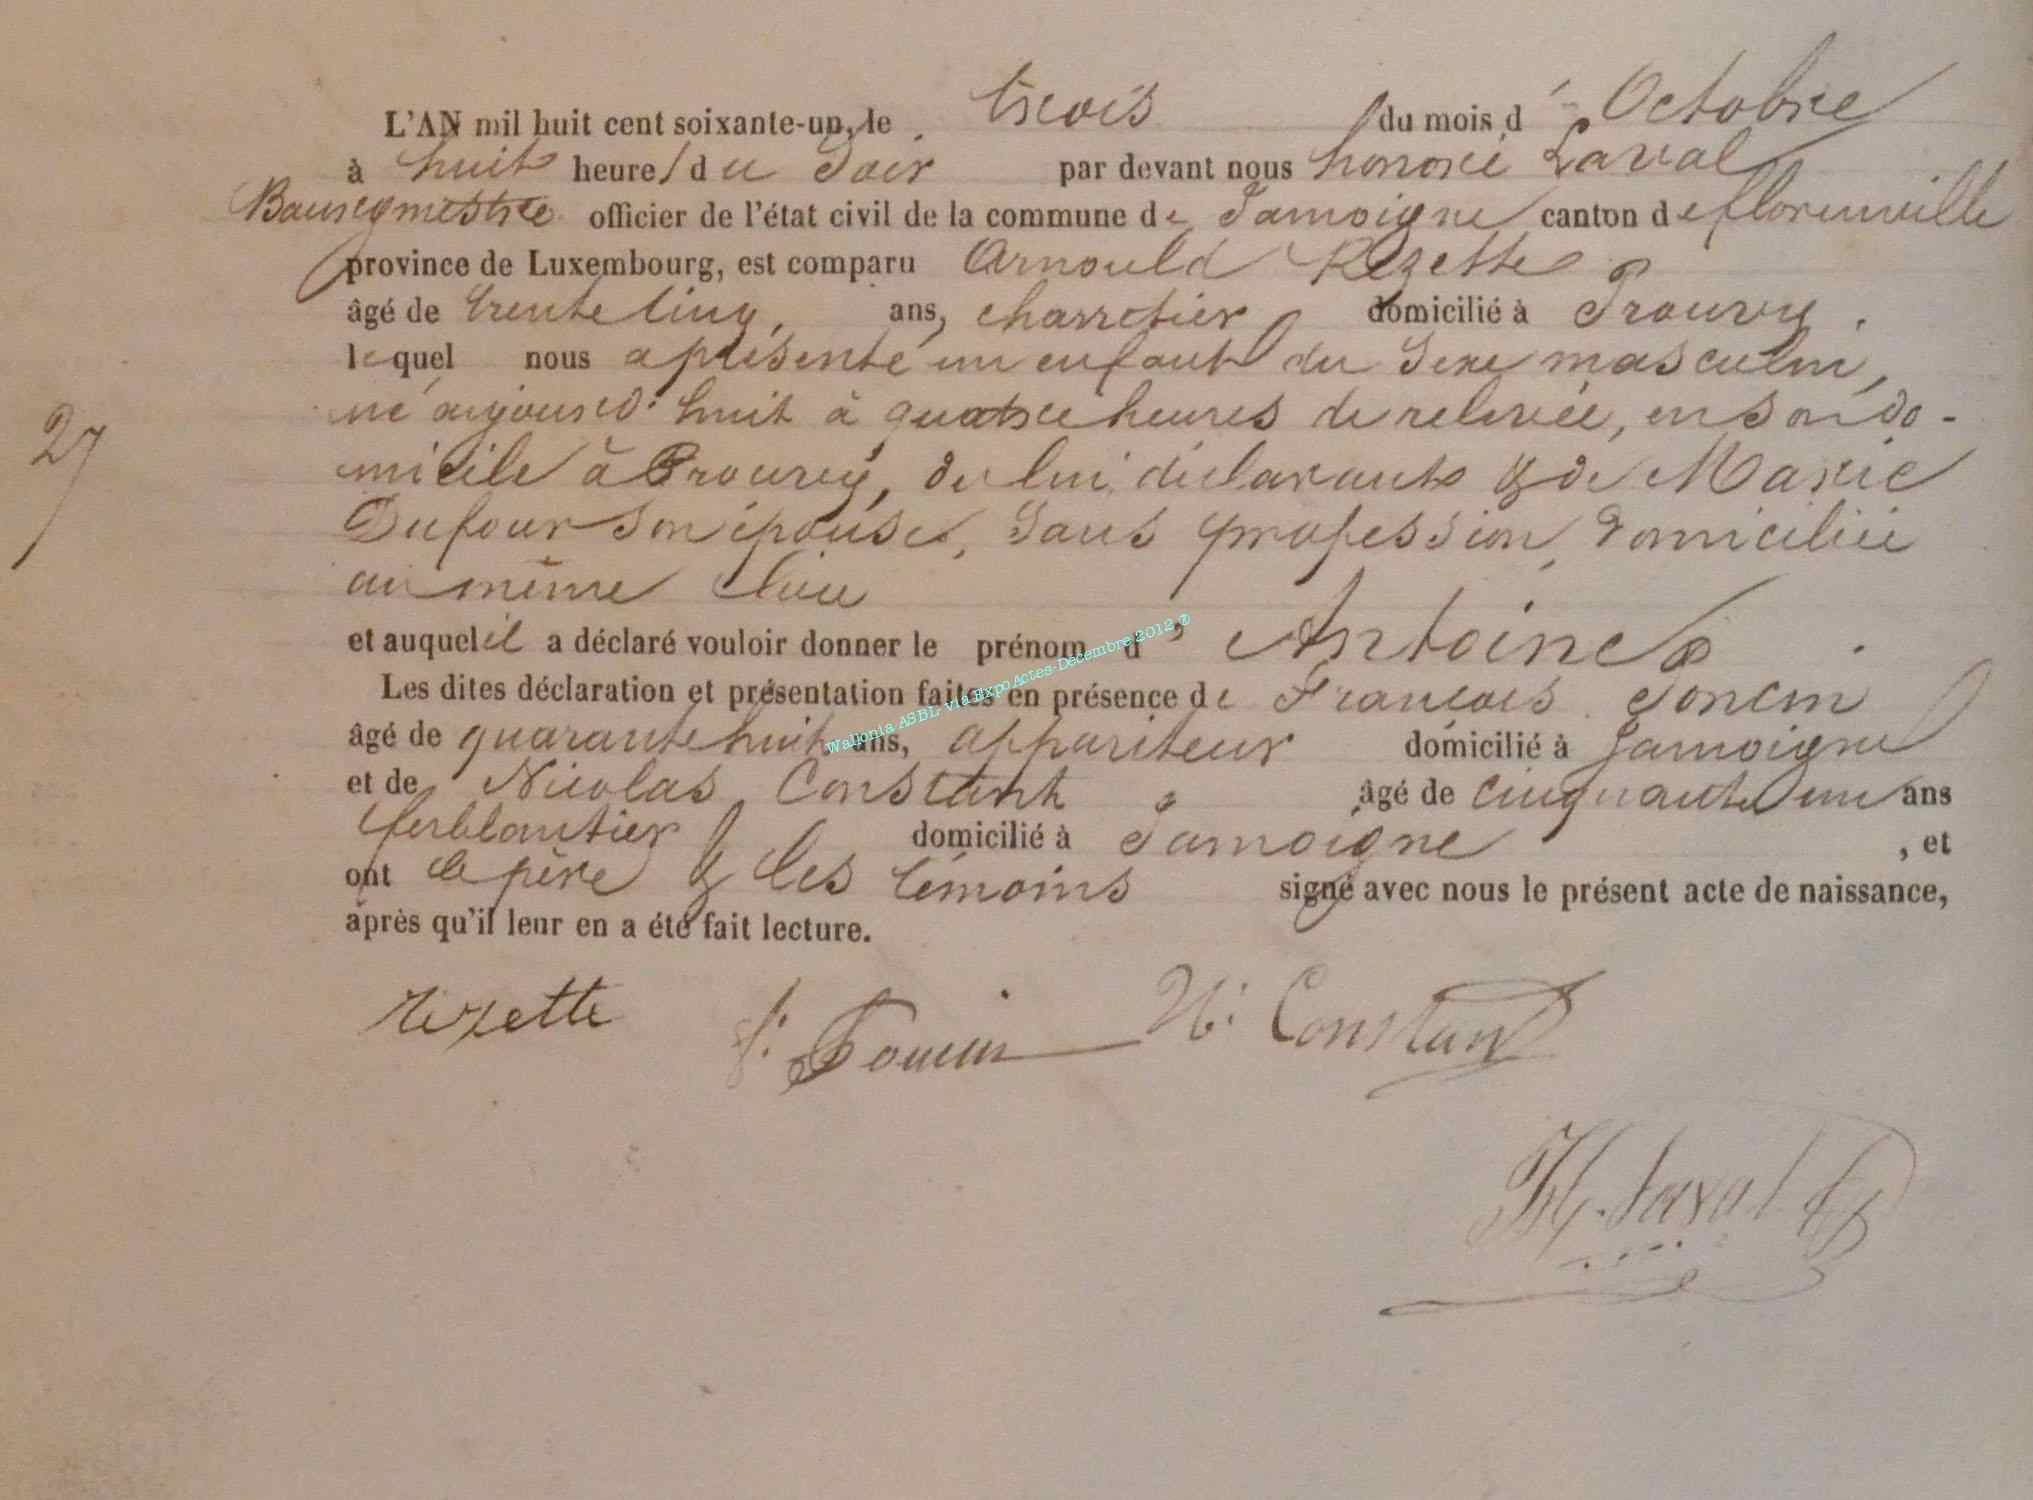 L'AN mil huit cent soixante-un, le trois du mois d' Octobre
à huit heures du Soir par devant nous honoré Laval
Bourgmestre officier de l'état civil de la commune de Jamoigne canton de florenville
province de Luxembourg, est comparu Arnould Rezette
âgé de trente cinq, ans, charretier domicilié à Prouvy.
lequel nous a présenté un enfant du Sexe masculin,
né aujourd'huit à quatre heures de relevée, en son do-
micile à Prouvy, de lui déclarant & de Marie
Dufour son épouse, Sans profession, domiciliée
au même lieu
27
et auquel il a déclaré vouloir donner le prénom d' Antoine
Les dites déclaration et présentation faites en présence de François Poncin
âgé de quarante huit ans, appariteur domicilié à Jamoigne
et de Nicolas Constant âgé de cinquante un ans
ferblantier domicilié à Jamoigne , et
ont le père & les témoins signé avec nous le présent acte de naissance,
après qu'il leur en a été fait lecture.
Wallonia ASBL via ExpoActes-Décembre 2012 ®
rezette f. Poncin N. Constant
H. Laval